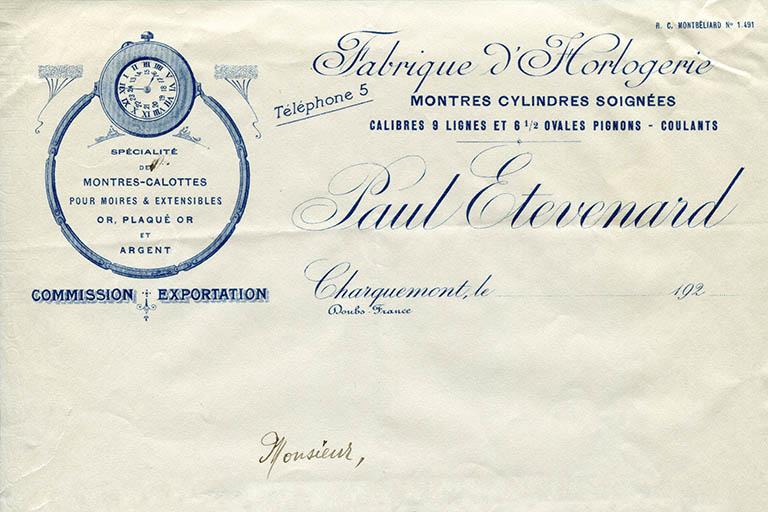 R. C. MONTBÉLIARD Nº 1.491
Fabrique d'Horlogerie
Téléphone 5
MONTRES CYLINDRES SOIGNÉES
CALIBRES 9 LIGNES ET 6 1/2 OVALES PIGNONS - COULANTS
Paul Etevenard
SPÉCIALITÉ
DE
MONTRES-CALOTTES
POUR MOIRES & EXTENSIBLES
OR, PLAQUÉ OR
ET
ARGENT
COMMISSION EXPORTATION
Charquemont, le 192
Doubs-France
Monsieur,